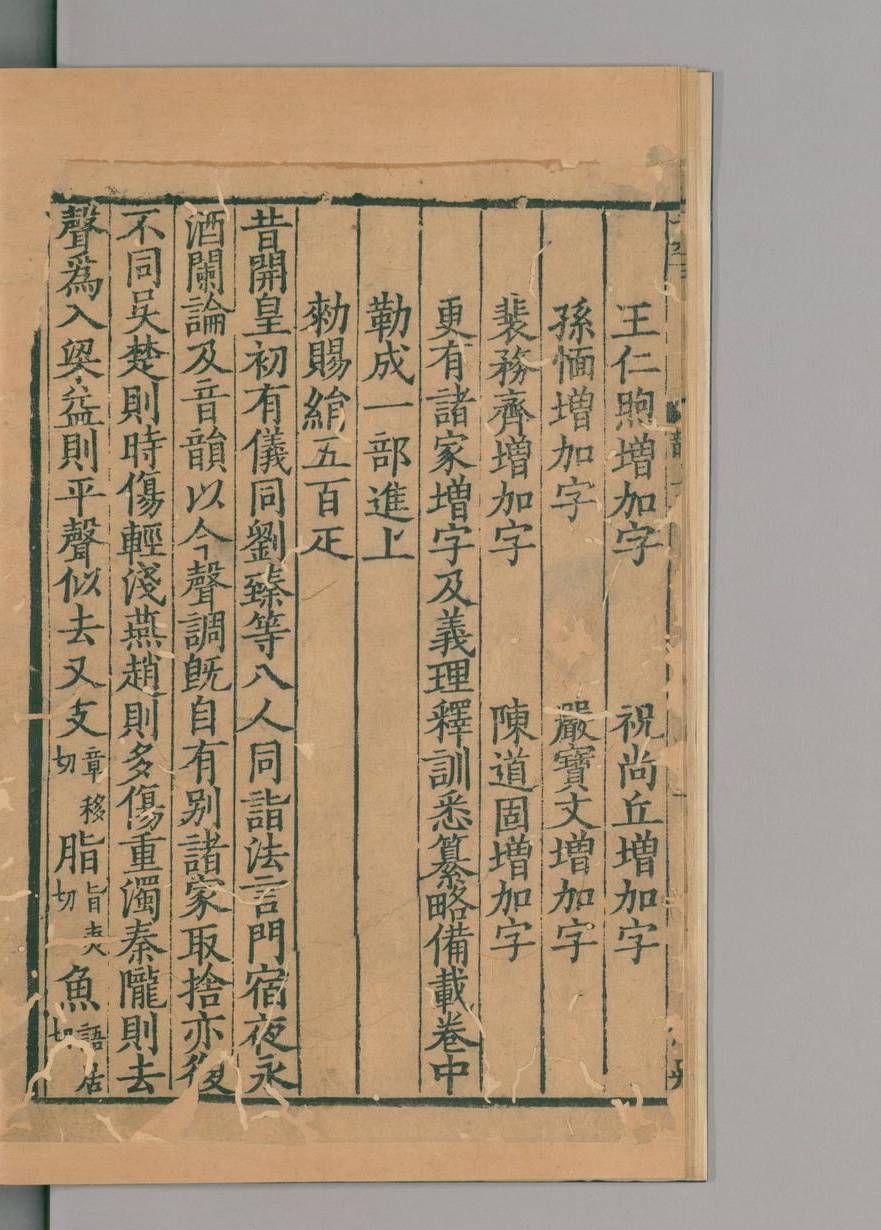 王仁煦增加字 祝尚丘增加字
孫愐增加字 嚴寶文增加字
裴務齊增加字 陳道固增加字
更有諸家增字及義理釋訓悉纂略備載卷中
勒成一部進上
勑賜絹五百疋
昔開皇初有儀同劉臻等八人同詣法言門宿夜永
酒闌論及音韻以今聲調旣自有别諸家取捨亦復
不同吳楚則時傷輕淺燕趙則多傷重濁秦隴則去
聲爲入梁益則平聲似去又支章移切脂旨夷切魚語居切